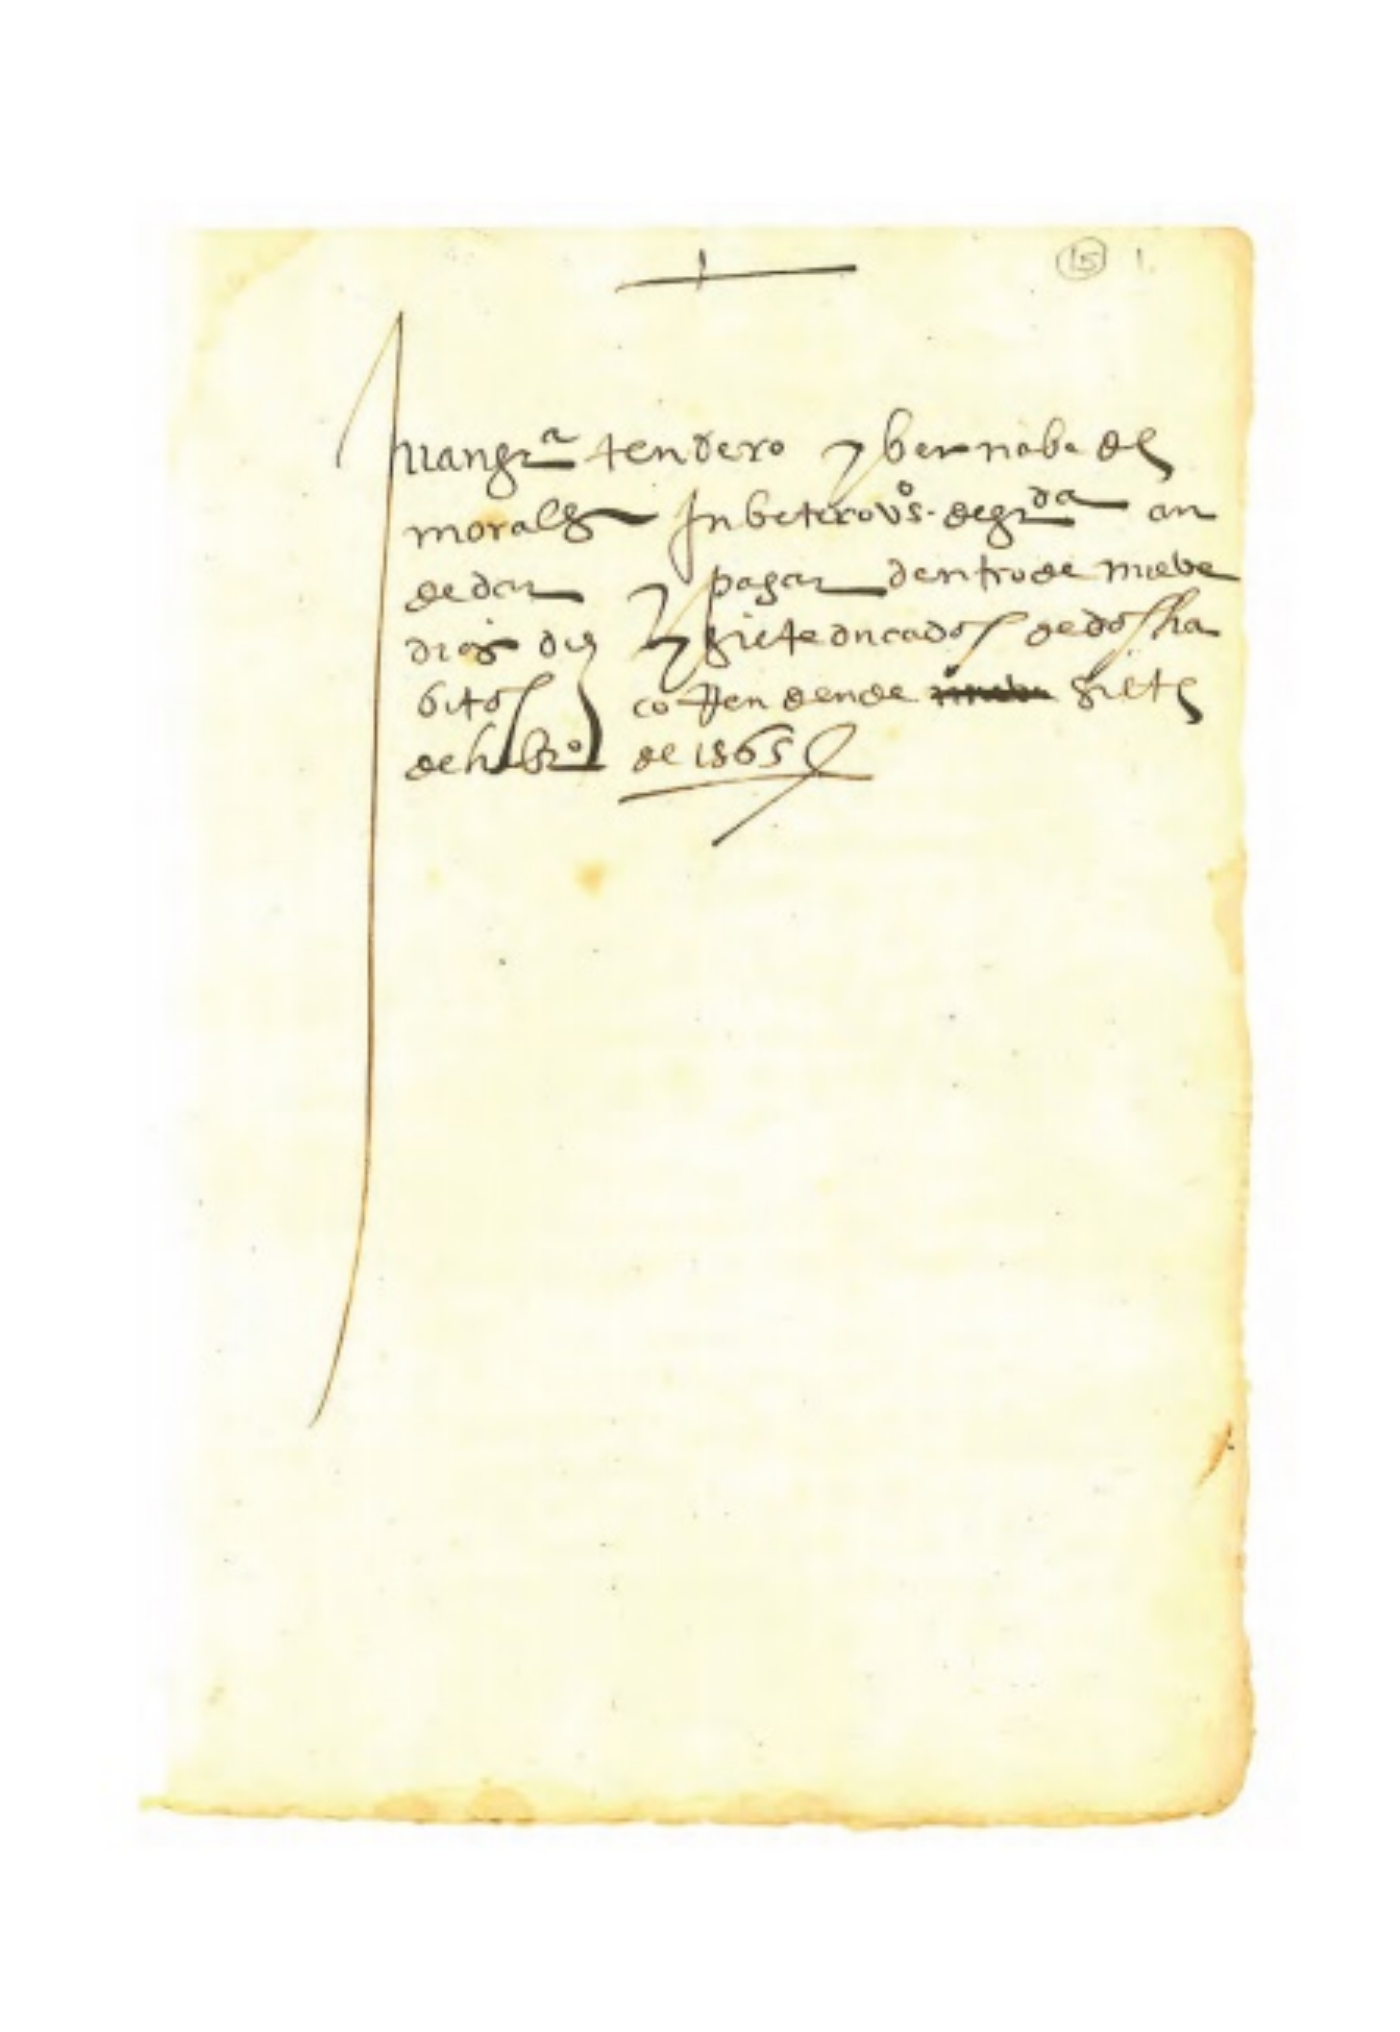 15 1
Juan grª tendero y bernabe de
morales Inbetero vºs. de grda an
de dar y pagar dentro de nuebe
dias diez y siete ducados de dos ha
bitos corren dende siete
de hebrº de 1565